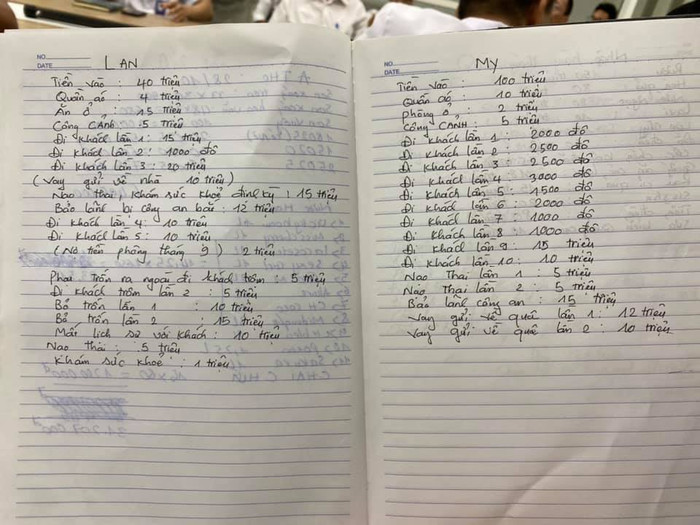 NO.
DATE
LAN
Tiền vào : 40 triệu
Quần áo : 4 triệu
Ăn ở : 15 triệu
Công CẢNH : 5 triệu
Đi khách lần 1 : 15 triệu
Đi khách lần 2 : 1000 đô
Đi khách lần 3 : 20 triệu
(Vay gửi về nhà 10 triệu)
Nạo thai, khám sức khoẻ định kỳ : 15 triệu
Bảo lãnh bị công an bắt : 12 triệu
Đi khách lần 4 : 10 triệu
Đi khách lần 5 : 10 triệu
(Nợ tiền phòng tháng 9) 2 triệu
Phạt Trốn ra ngoài đi khách trộm : 5 triệu
Đi khách trộm lần 2 : 5 triệu
Bỏ trốn lần 1 : 10 triệu
Bỏ trốn lần 2 : 15 triệu
Mất lịch sự với khách : 10 triệu
Nạo thai : 5 triệu
Khám sức khoẻ : 1 triệu
NO.
DATE
MY
Tiền vào : 100 triệu
Quần áo : 10 triệu
Phòng ở : 2 triệu
Công CẢNH : 5 triệu
Đi khách lần 1 : 2000 đô
Đi khách lần 2 : 2500 đô
Đi khách lần 3 : 2500 đô
Đi khách lần 4 : 3000 đô
Đi khách lần 5 : 1500 đô
Đi khách lần 6 : 2000 đô
Đi khách lần 7 : 1000 đô
Đi khách lần 8 : 1000 đô
Đi khách lần 9 : 15 triệu
Đi khách lần 10 : 10 triệu
Nạo Thai lần 1 : 5 triệu
Nạo Thai lần 2 : 5 triệu
Bảo lãnh công an : 15 triệu
Vay gửi về quê lần 1 : 12 triệu
Vay gửi về quê lần 2 : 10 triệu